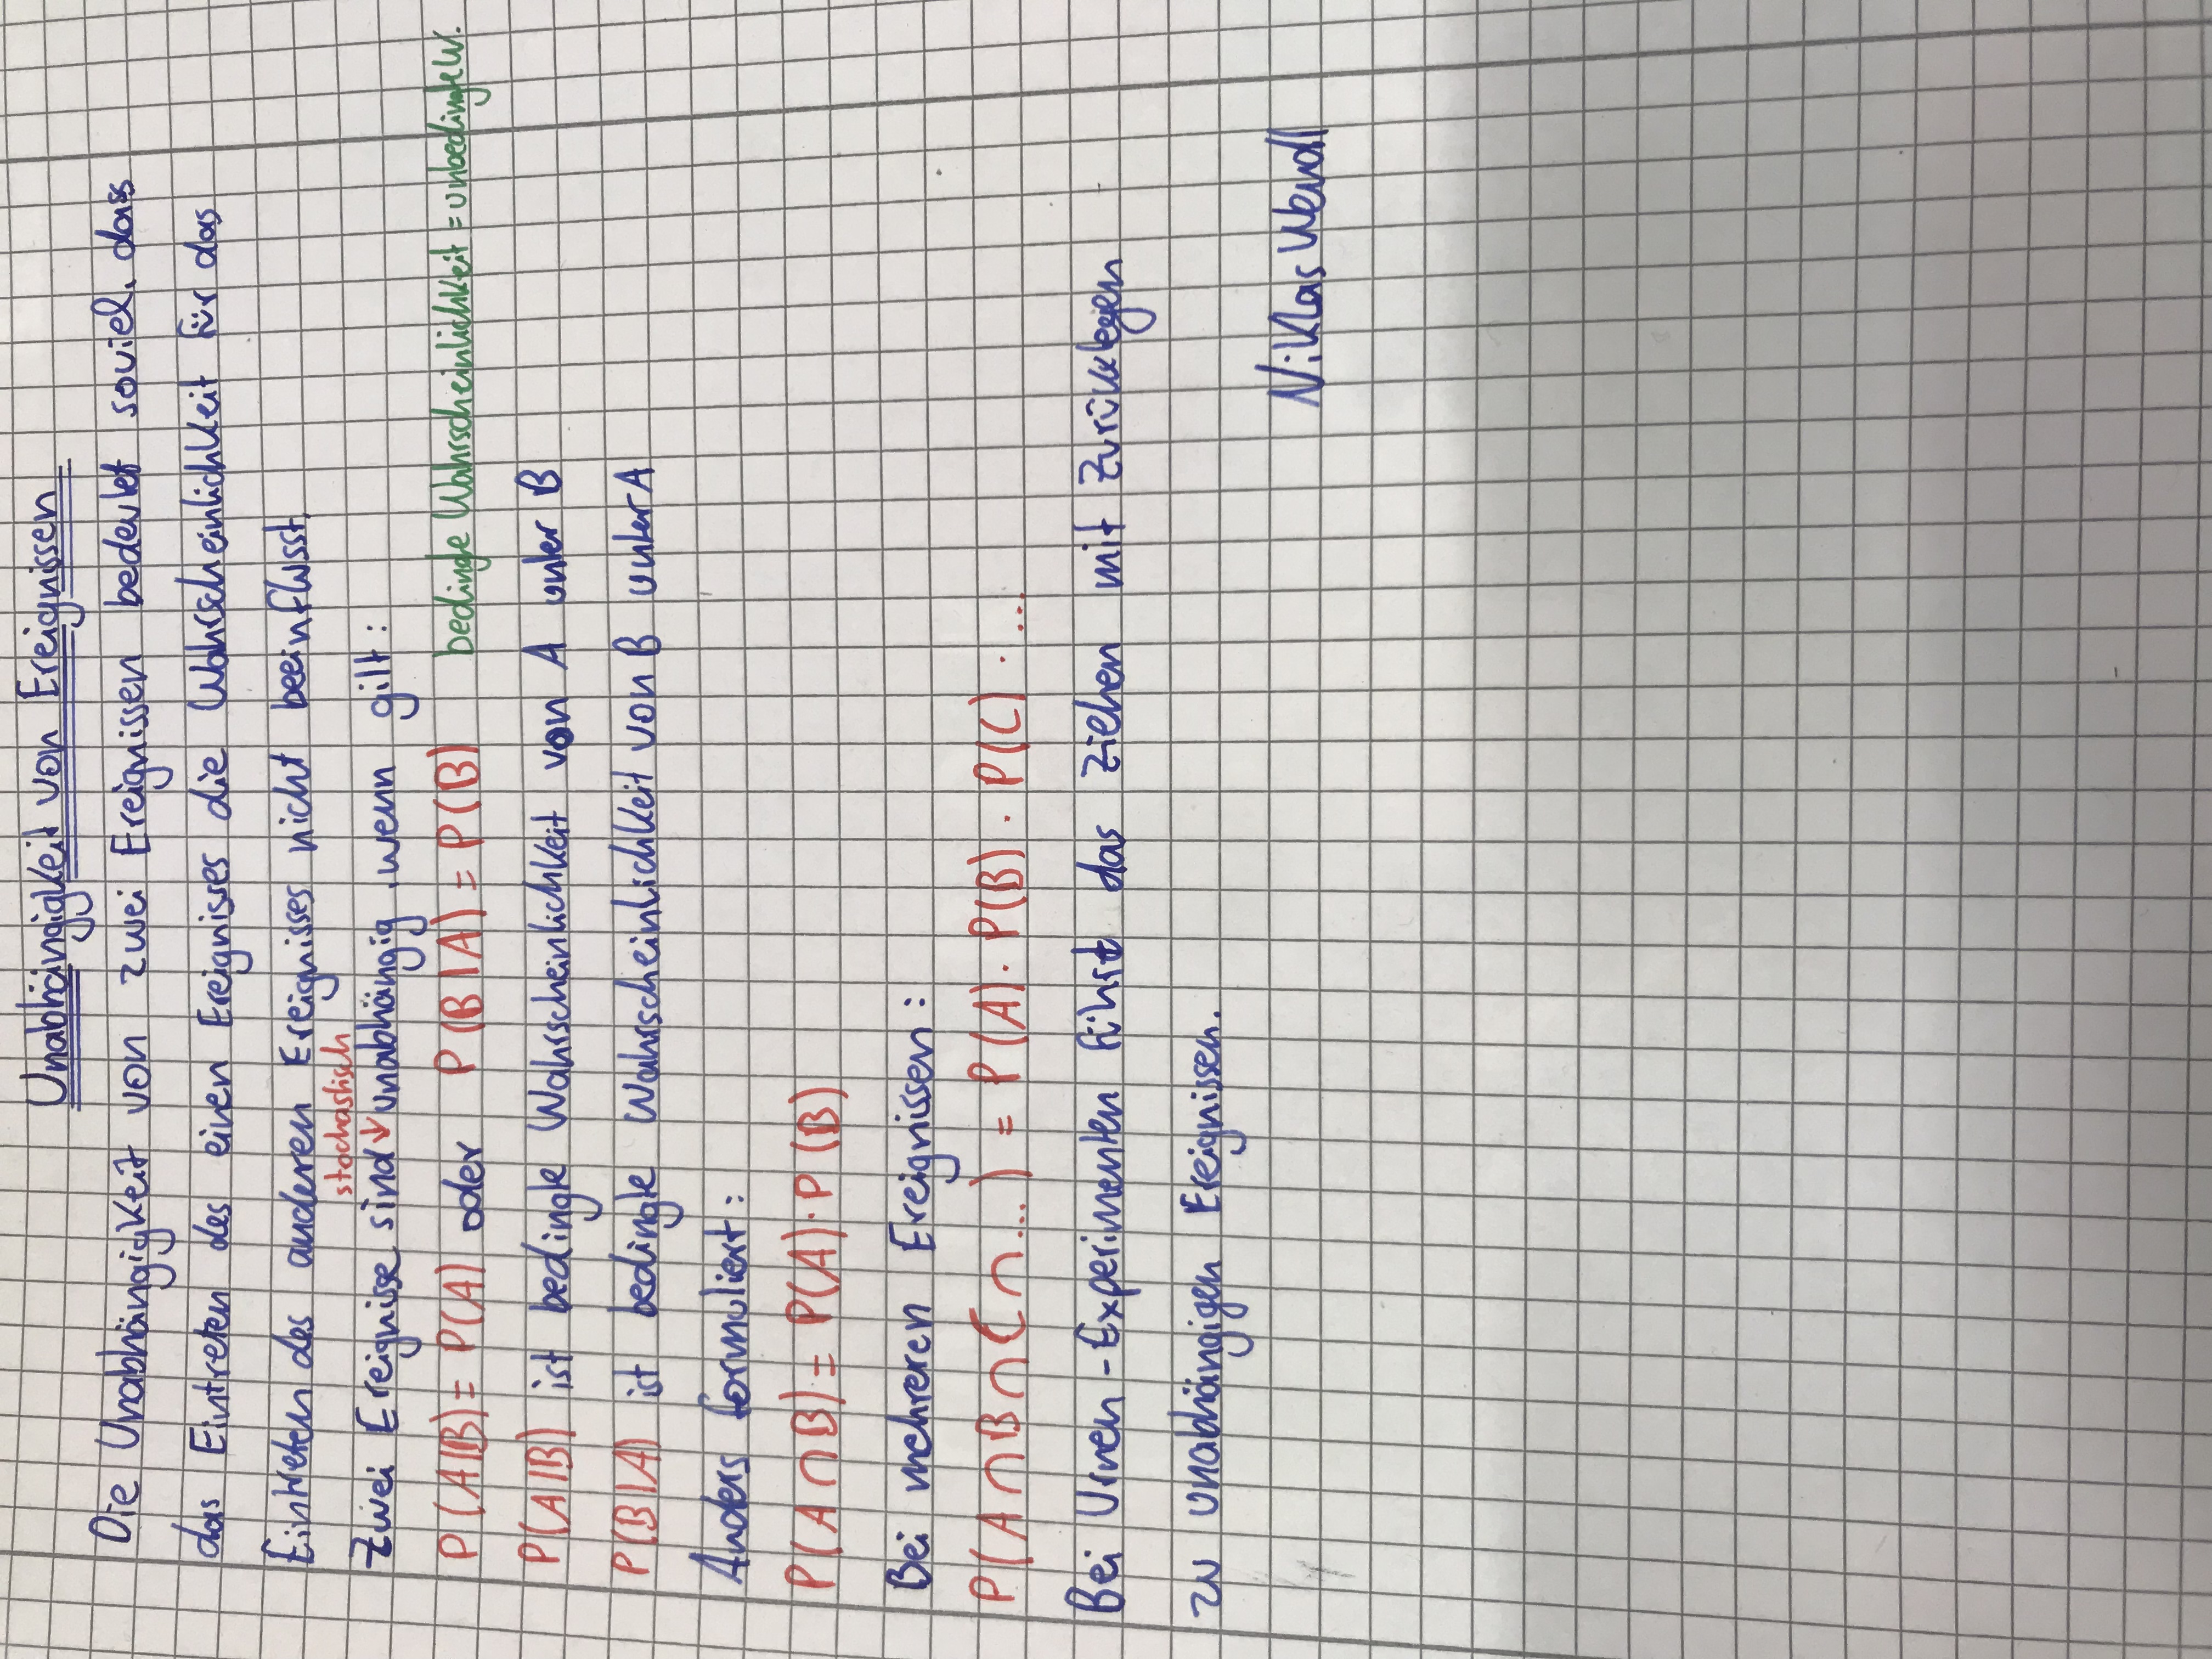 Unabhängigkeit von Ereignissen
Die Unabhängigkeit von zwei Ereignissen bedeutet soviel, dass
das Eintreten des einen Ereignisses die Wahrscheinlichkeit für das
Eintreten des anderen Ereignisses nicht beeinflusst.
stochastisch
Zwei Ereignisse sind unabhängig, wenn gilt:
P(A|B) = P(A) oder P(B|A) = P(B) bedingte Wahrscheinlichkeit = unbedingte W.
P(A|B) ist bedingte Wahrscheinlichkeit von A unter B
P(B|A) ist bedingte Wahrscheinlichkeit von B unter A
Anders formuliert:
P(A∩B) = P(A)·P(B)
Bei mehreren Ereignissen:
P(A∩B∩C∩...) = P(A)·P(B)·P(C)·...
Bei Urnen-Experimenten führt das Ziehen mit Zurücklegen
zu unabhängigen Ereignissen.
Niklas Wendl